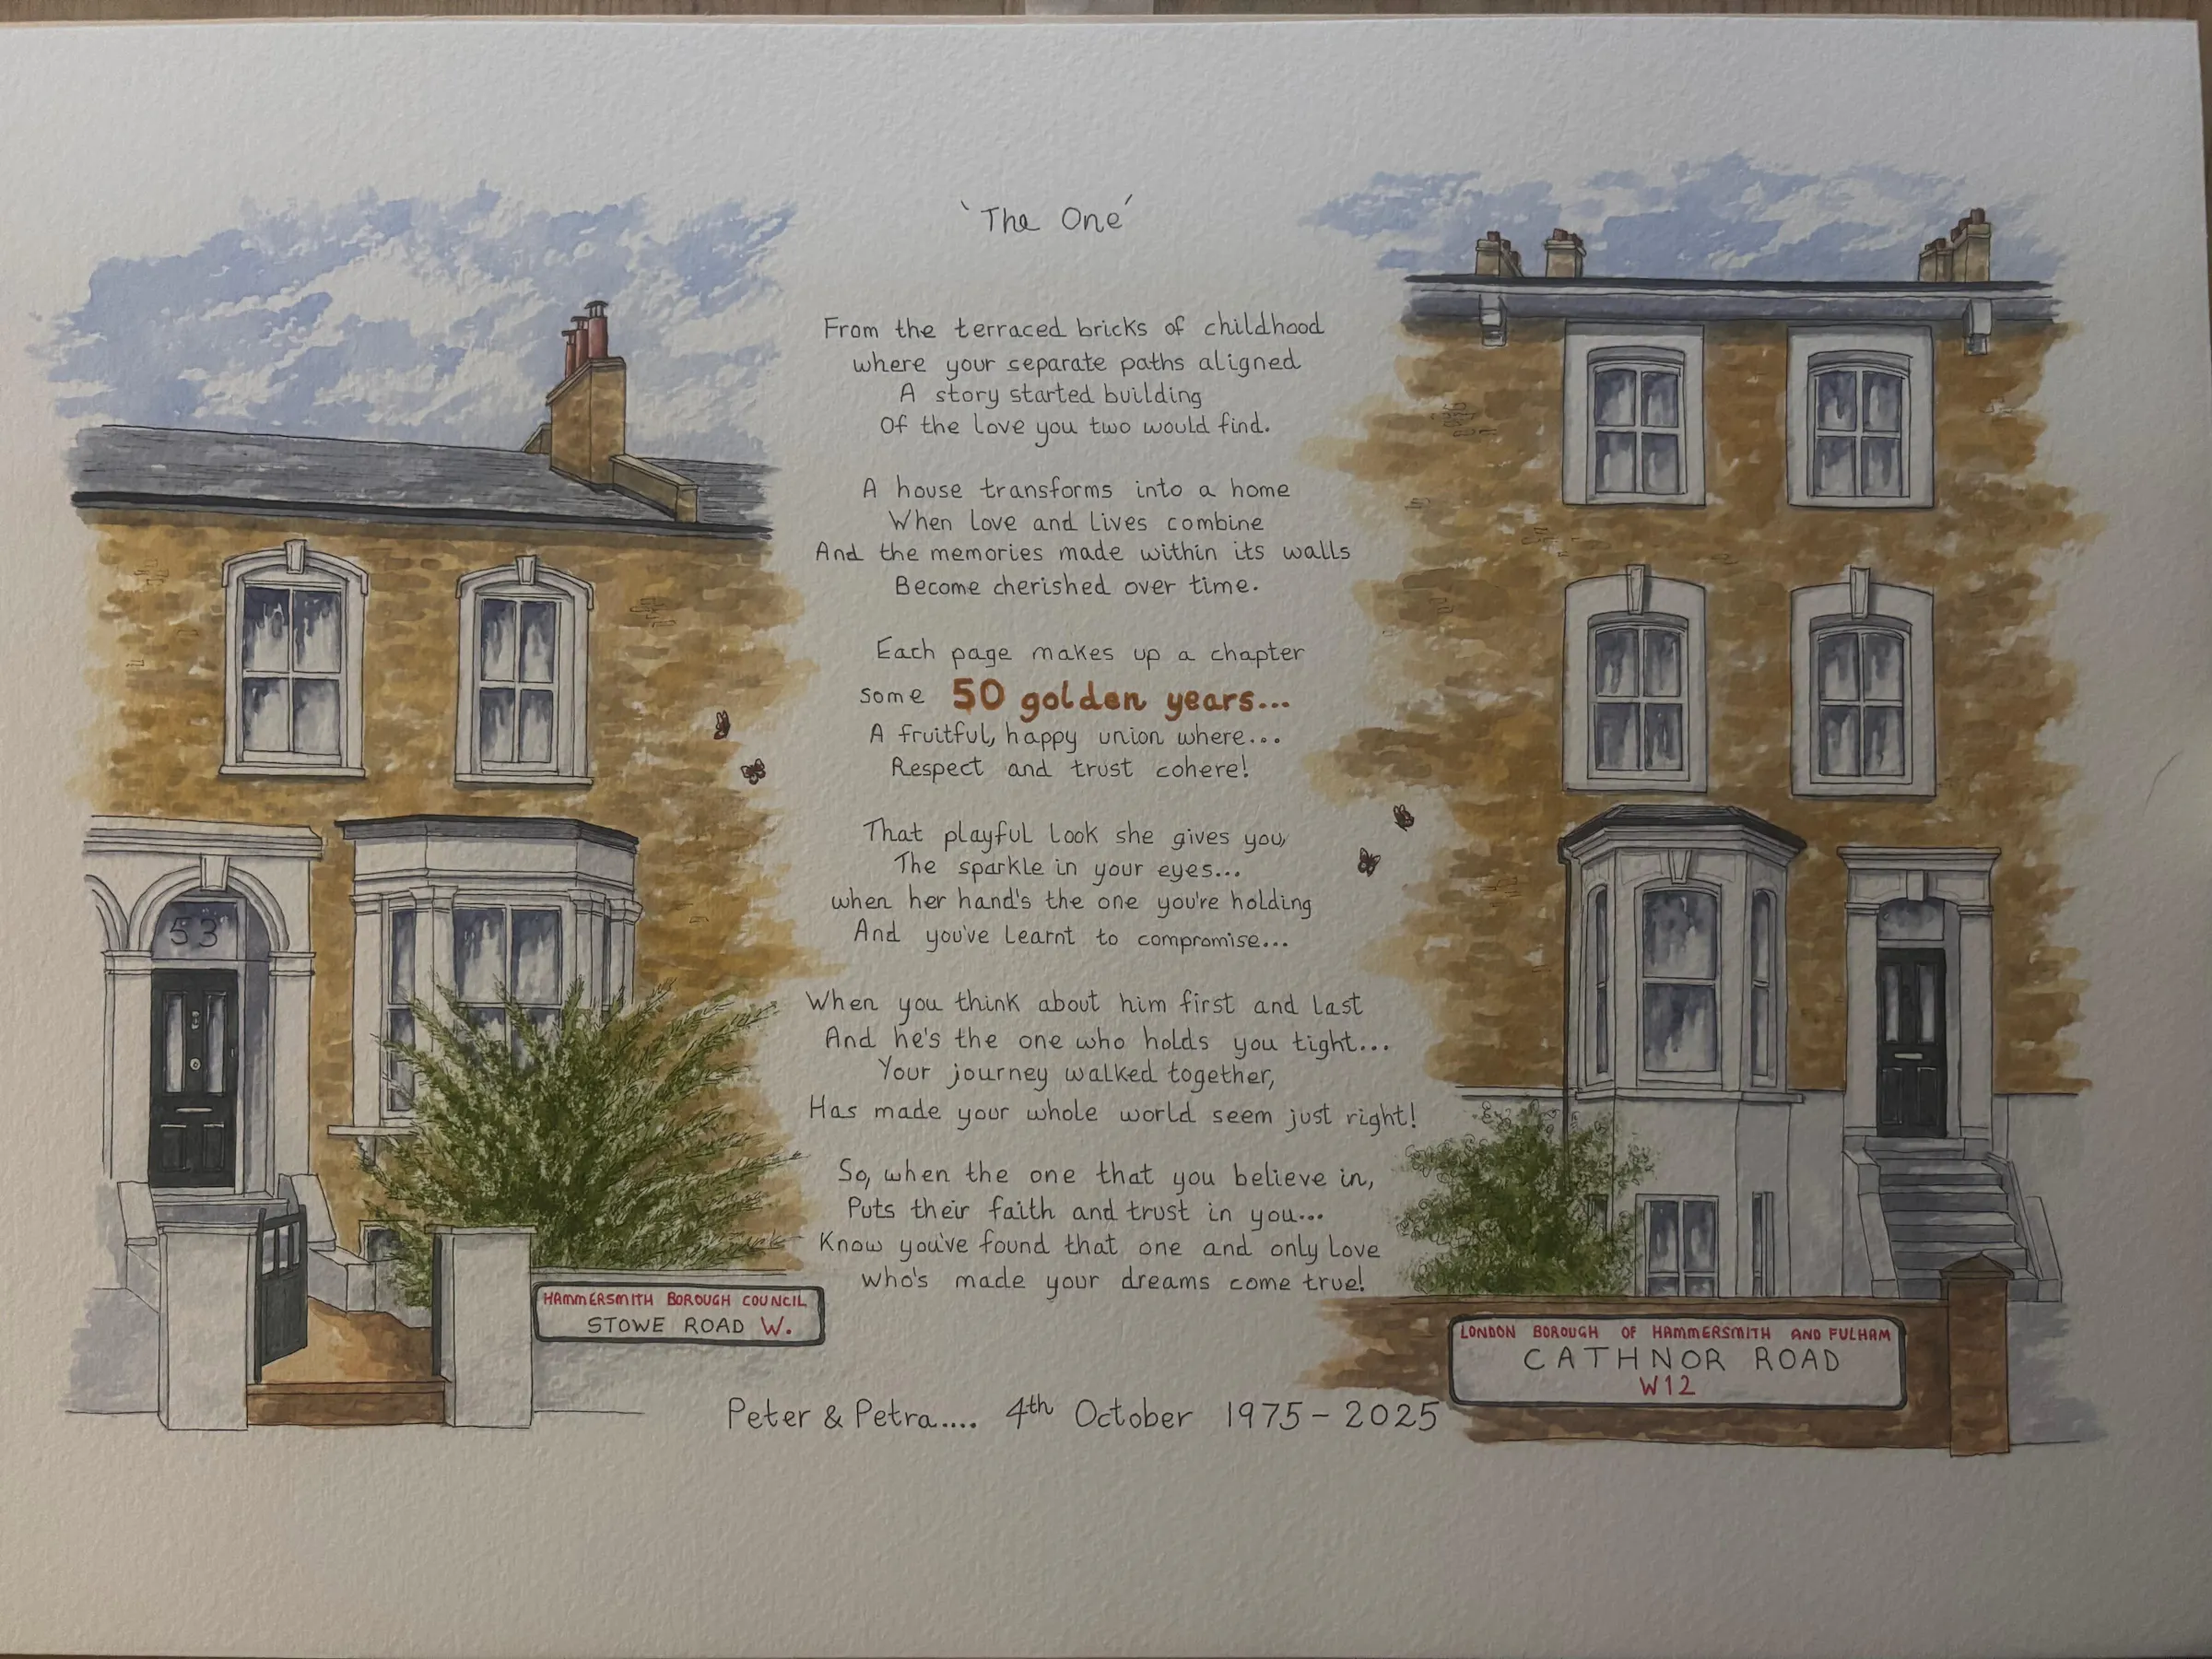 'The One'
From the terraced bricks of childhood
where your separate paths aligned
A story started building
Of the love you two would find.
A house transforms into a home
When love and lives combine
And the memories made within its walls
Become cherished over time.
Each page makes up a chapter
some 50 golden years...
A fruitful, happy union where...
Respect and trust cohere!
That playful look she gives you,
The sparkle in your eyes...
when her hand's the one you're holding
And you've learnt to compromise...
When you think about him first and last
And he's the one who holds you tight...
Your journey walked together,
Has made your whole world seem just right!
So, when the one that you believe in,
Puts their faith and trust in you...
Know you've found that one and only love
who's made your dreams come true!
Peter & Petra.... 4th October 1975-2025
53
HAMMERSMITH BOROUGH COUNCIL
STOWE ROAD W.
LONDON BOROUGH OF HAMMERSMITH AND FULHAM
CATHNOR ROAD
W12